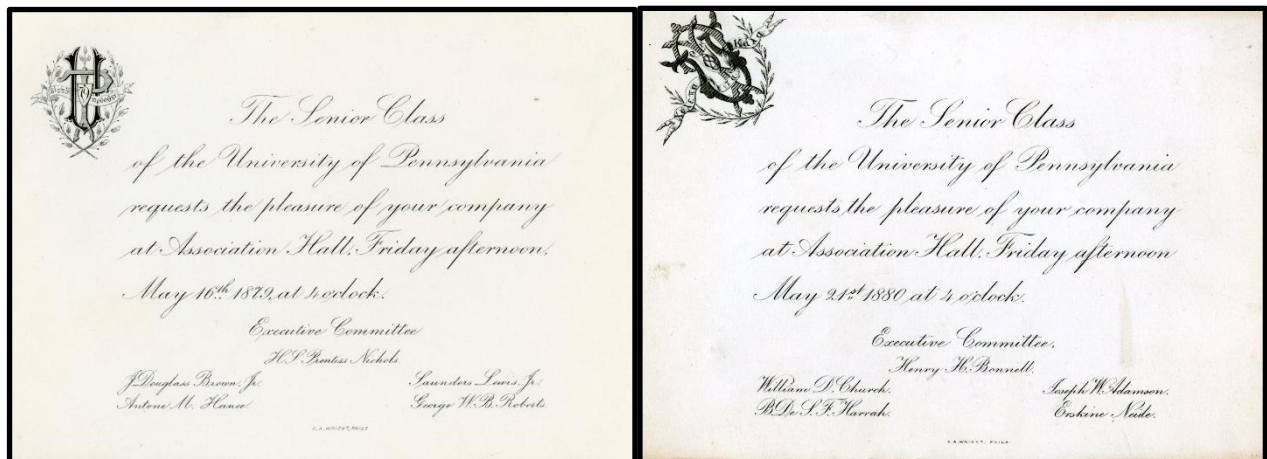 The Senior Class
of the University of Pennsylvania
requests the pleasure of your company
at Association Hall, Friday afternoon,
May 16th 1879, at 4 o'clock.
Executive Committee
H.S. Prentiss Nichols.
J. Douglass Brown, Jr.
Saunders Lewis, Jr.
Antone M. Hance.
George W.B. Roberts.
C.A. WRIGHT, PHILA
The Senior Class
of the University of Pennsylvania
requests the pleasure of your company
at Association Hall, Friday afternoon
May 21st 1880 at 4 o'clock.
Executive Committee.
Henry H. Bonnell.
William D. Church.
Joseph W. Adamson.
B. De S. F. Harrah.
Erskine Neide.
C.A. WRIGHT, PHILA.